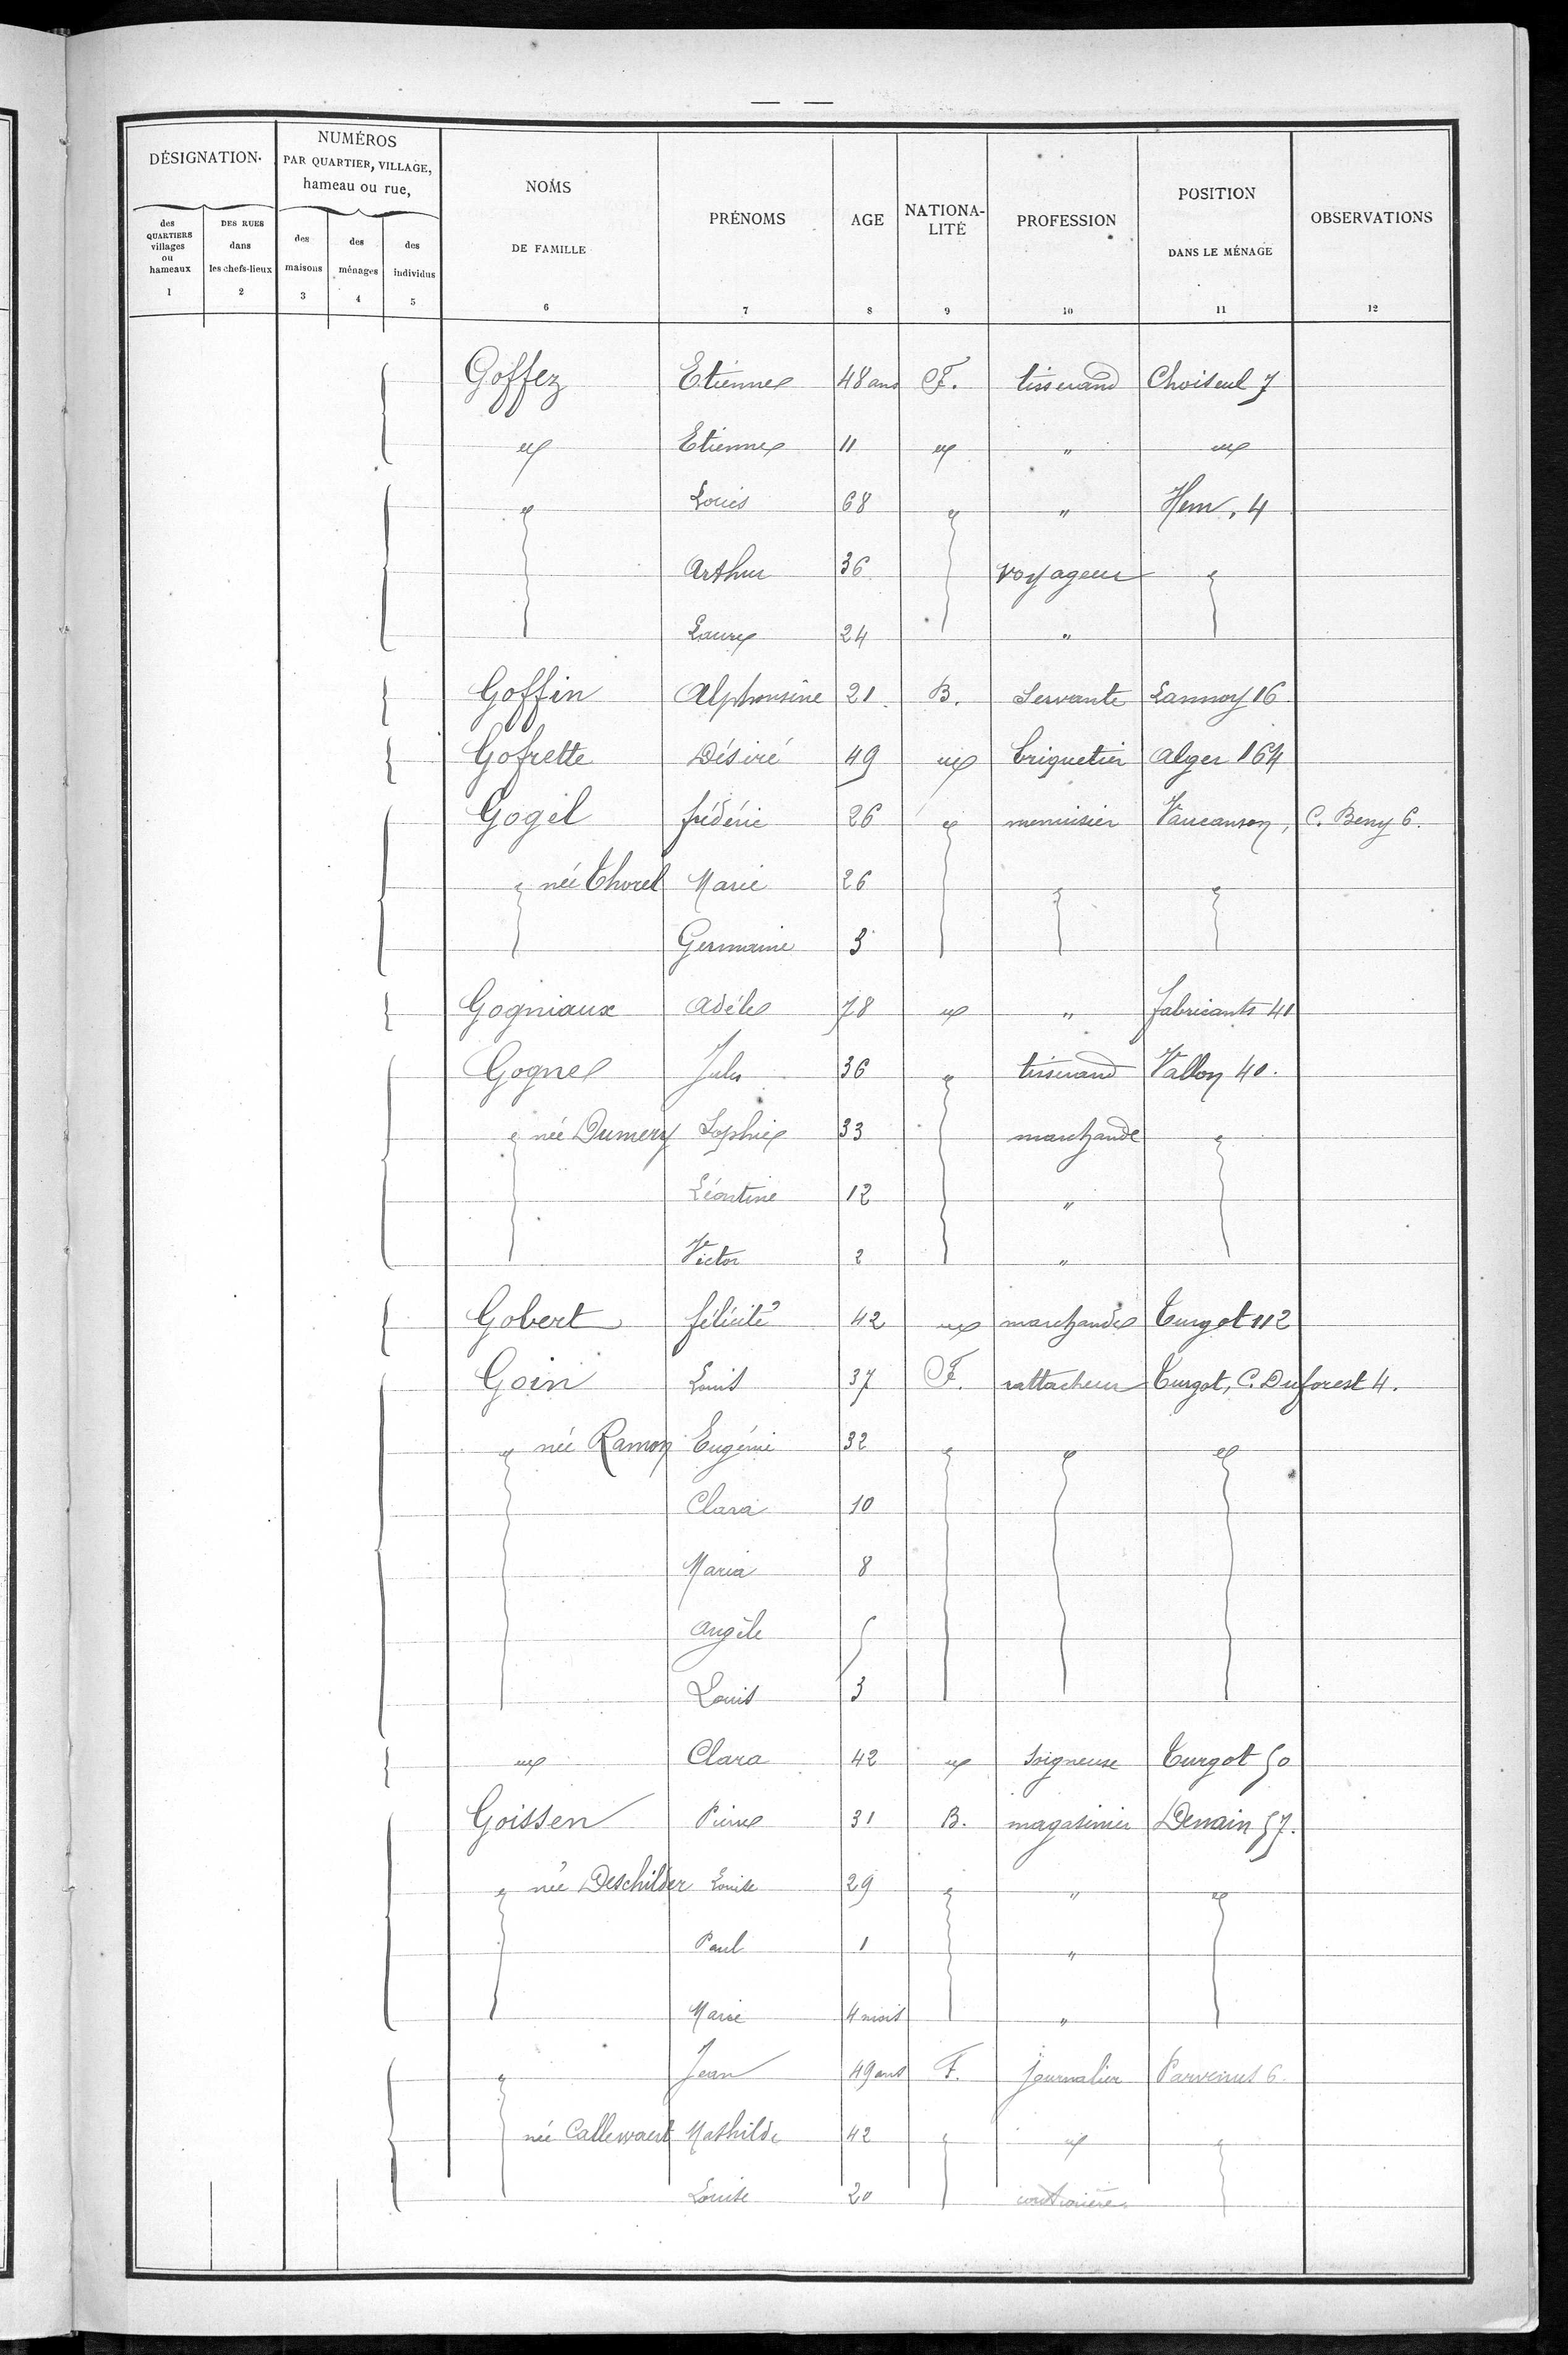 DÉSIGNATION.
des QUARTIERS villages ou hameaux
1
DES RUES dans les chefs-lieux
2
NUMÉROS PAR QUARTIER, VILLAGE, hameau ou rue,
des maisons
3
des ménages
4
des individus
5
NOMS DE FAMILLE
6
PRÉNOMS
7
AGE
8
NATIONA-LITÉ
9
PROFESSION
10
POSITION DANS LE MÉNAGE
11
OBSERVATIONS
12
Goffez Etienne 48 ans F. tisserand Choiseul 7
" Etienne 11 " " "
" Louis 68 " " Hem, 4
Arthur 36 voyageur "
Laure 24 "
Goffin Alphonsine 21 B. Servante Lannoy 16
Gofrette Désiré 49 " briquetier Alger 164
Gogel frédéric 26 " menuisier Vaucanson, C. Beny 6.
" née Thorel Marie 26 " "
Germaine 3
Gogniaux Adèle 78 " " fabricants 41
Gogne Jules 36 " tisserand Vallon 40.
" née Dumery Sophie 33 marchande "
Léontine 12 "
Victor 2 "
Gobert félicité 42 " marchande Turgot 112
Goin Louis 37 F. rattacheur Turgot, C. Duforest 4.
" née Ramon Eugénie 32 " " "
Clara 10
Maria 8
Angèle 5
Louis 3
" Clara 42 " Soigneuse Turgot 50
Goissen Pierre 31 B. magasinier Denain 57.
" née Deschilder Louise 29 " " "
Paul 1 "
Marie 4 mois "
" Jean 49 ans F. journalier Parvenus 6.
née Callewaert Mathilde 42 " " "
Louise 20 couturière